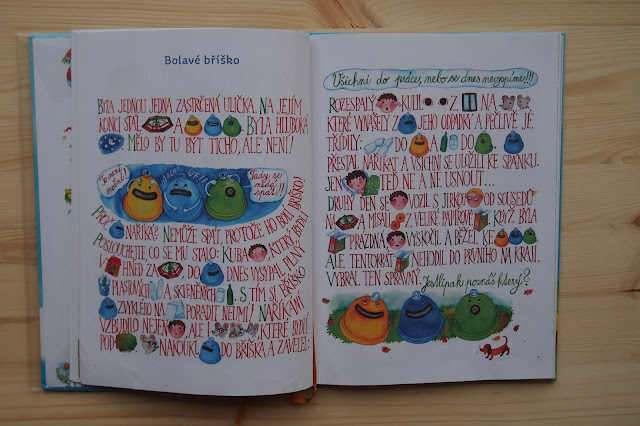 Bolavé bříško
BYLA JEDNOU JEDNA ZASTRČENÁ ULIČKA. NA JEJÍM
KONCI SPAL A BYLA HLUBOKÁ
MĚLO BY TU BÝT TICHO, ALE NENÍ!
To není možné!
Tady se nedá spát!!!
PROČ NAŘÍKÁ? NEMŮŽE SPÁT, PROTOŽE HO BOLÍ BŘÍŠKO!
POSLOUCHEJTE, CO SE MU STALO: KUBA, KTERÝ BYDLÍ
V HNED ZA DO DNES VYSYPAL PLNÝ
PLASTOVÝCH A SKLENĚNÝCH. S TÍM SI BŘÍŠKO
ZVYKLÉHO NA PORADIT NEUMÍ! NAŘÍKÁNÍ
VZBUDILO NEJEN, ALE I, KTERÉ BYDLÍ
POD. NAKOUKL DO BŘÍŠKA A ZAVELEL:
Všichni do práce, nebo se dnes nevyspíme!!!
ROZESPALÝ KULIL Z NA
KTERÉ VYNÁŠELY Z JEHO ODPADKY A PEČLIVĚ JE
TŘÍDILY: DO A DO.
PŘESTAL NAŘÍKAT A VŠICHNI SE ULOŽILI KE SPÁNKU.
JEN TEĎ NE A NE USNOUT...
DRUHÝ DEN SE VOZIL S JIRKOU OD SOUSEDŮ
NA A MÍSALI Z VELKÉ PAPÍROVÉ. KDYŽ BYLA
PRÁZDNÁ, VYSKOČIL A BĚŽEL KE
ALE TENTOKRÁT NEHODIL DO PRVNÍHO NA KRAJI.
VYBRAL TEN SPRÁVNÝ. Jestlipak poznáš který?